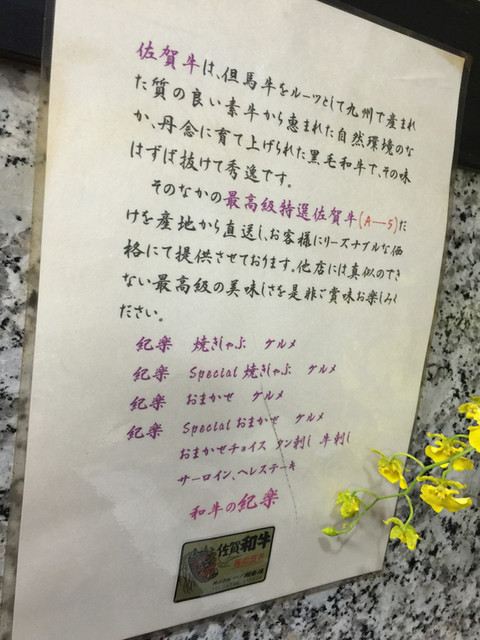 佐賀牛は、但馬牛をルーツとして九州で産まれ
た質の良い素牛から恵まれた自然環境のな
か、丹念に育て上げられた黒毛和牛で、その味
はずば抜けて秀逸です。
そのなかの最高級特選佐賀牛(A—5)だ
けを産地から直送し、お客様にリーズナブルな価
格にて提供させております。他店には真似のでき
ない最高級の美味しさを是非ご賞味お楽しみく
ださい。
紀楽 焼きしゃぶ グルメ
紀楽 Special 焼きしゃぶ グルメ
紀楽 おまかせ グルメ
紀楽 Special おまかせ グルメ
おまかせチョイス タン刺し 牛刺し
サーロイン、ヘレステーキ
和牛の紀楽
佐賀和牛